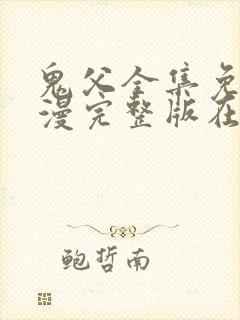 鬼父全集免
漫完整版在
鲍哲南